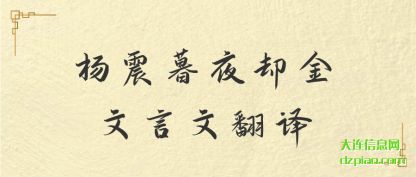 杨震暮夜却金
文言文翻译
大连信息网
dzpiao.com